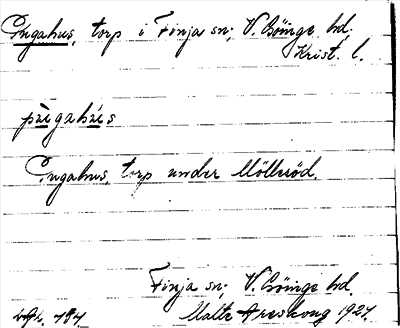 Pugahus, torp i Finja sn; V. Göinge hd.
Krist. l.
pùgahús
Pugahus, torp under Mölleröd.
Finja sn; V. Göinge hd.
Malte Areskoug 1927.